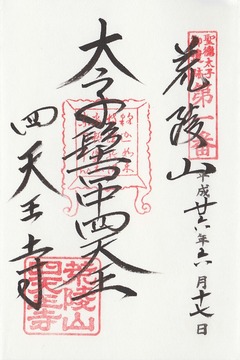 聖徳太子
第一番
荒陵山
平成廿六年六月十七日
大子髻中四天王
四天王寺
荒陵山
四天王寺